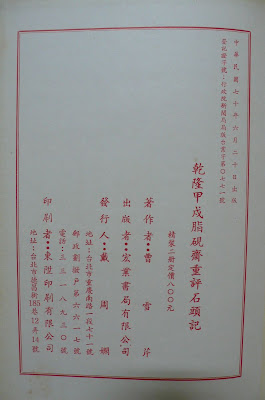 中華民國七十年六月二十日出版
登記證字號：行政院新聞局局版台業字第〇七七一號
乾隆甲戌脂硯齋重評石頭記
精裝二册定價八〇〇元
著作者：曹雪芹
出版者：宏業書局有限公司
發行人：戴周嫻
地址：台北市重慶南路一段七十一號
郵政劃撥戶第六六一七號
電話：三三一八九三〇號
印刷者：東陞印刷有限公司
地址：台北市德昌街185巷12弄14號